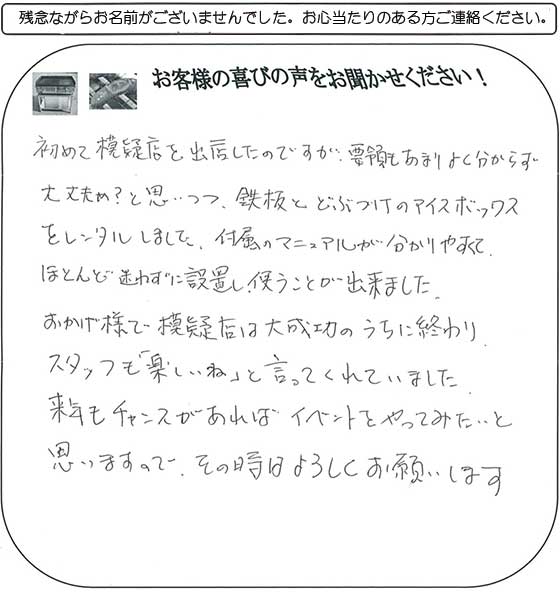 残念ながらお名前がございませんでした。お心当たりのある方ご連絡ください。
お客様の喜びの声をお聞かせください！
初めて模疑店を出店したのですが、要領もあまりよく分からず
大丈夫か？と思いつつ、鉄板とどぶづけのアイスボックス
をレンタルしました。付属のマニュアルが分かりやすくて、
ほとんど迷わずに設置し、使うことが出来ました。
おかげ様で模疑店は大成功のうちに終わり
スタッフも「楽しいね」と言ってくれていました
来年もチャンスがあればイベントをやってみたいと
思いますので、その時はよろしくお願いします